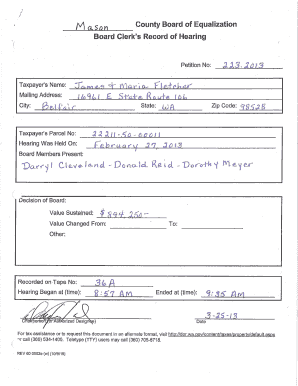 Mason County Board of Equalization
Board Clerk's Record of Hearing
Petition No: 223-2013
Taxpayer's Name: James & Maria Fletcher
Mailing Address: 16961 E State Route 106
City: Belfair State: WA Zip Code: 98528
Taxpayer's Parcel No: 22211-50-00011
Hearing Was Held On: February 27, 2013
Board Members Present:
Darryl Cleveland - Donald Reid - Dorothy Meyer
Decision of Board:
Value Sustained: $ 844,250-
Value Changed From: To:
Other:
Recorded on Tape No: 36A
Hearing Began at (time): 8:57 AM Ended at (time): 9:35 AM
3-25-13
Chairperson (or Authorized Designee) Date
For tax assistance or to request this document in an alternate format, visit http://dor.wa.gov/content/taxes/property/default.aspx
or call (360) 534-1400. Teletype (TTY) users may call (360) 705-6718.
REV 60 0002e (w)